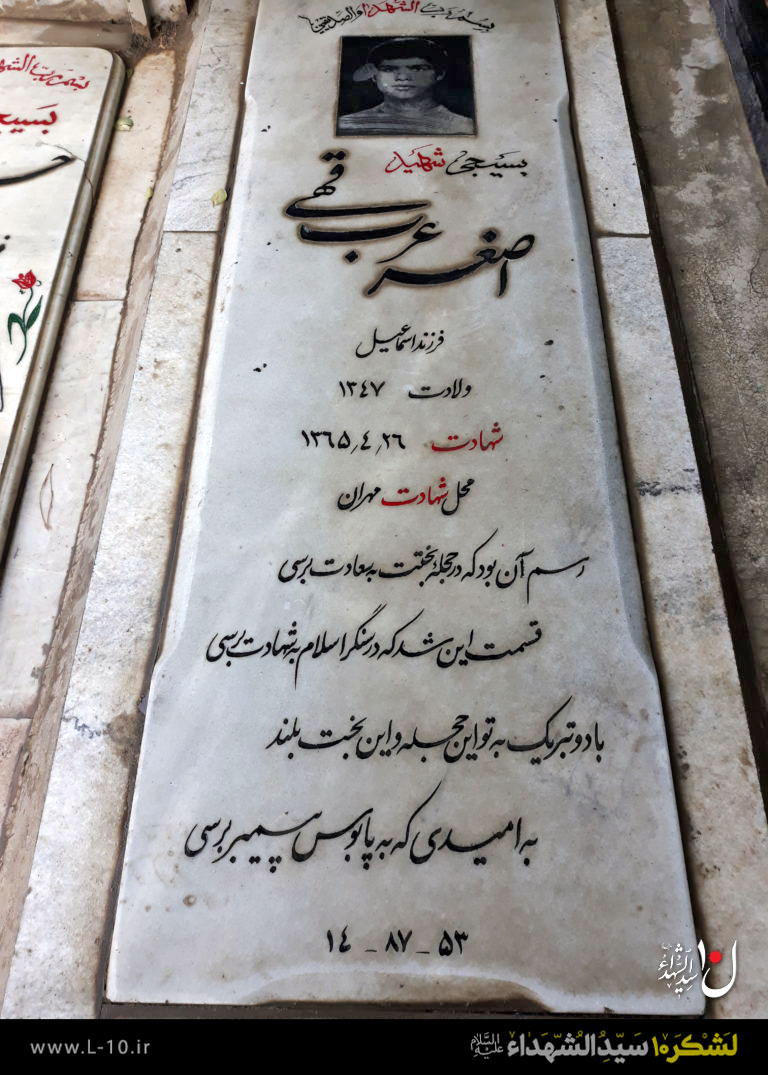 بسم رب الشهداء و الصدیقین
بسیجی شهید
اصغر عرب قهی
فرزند اسماعیل
ولادت ۱۳٤۷
شهادت ۲٦٫٤٫۱۳٦۵
محل شهادت مهران
رسم آن بود که در حجلهٔ بختت به سعادت برسی
قسمت این شد که در سنگر اسلام به شهادت برسی
باد و تبریک به تو این حجله و این بخت بلند
به امیدی که به پابوس پیمبر برسی
۵۳ - ۸۷ - ۱٤
بسم رب الشه
بسیج
ل ۱۰ سیدالشهداء
لشکر۱۰ سیّدُالشّهداء علیه السّلام
www.L-10.ir